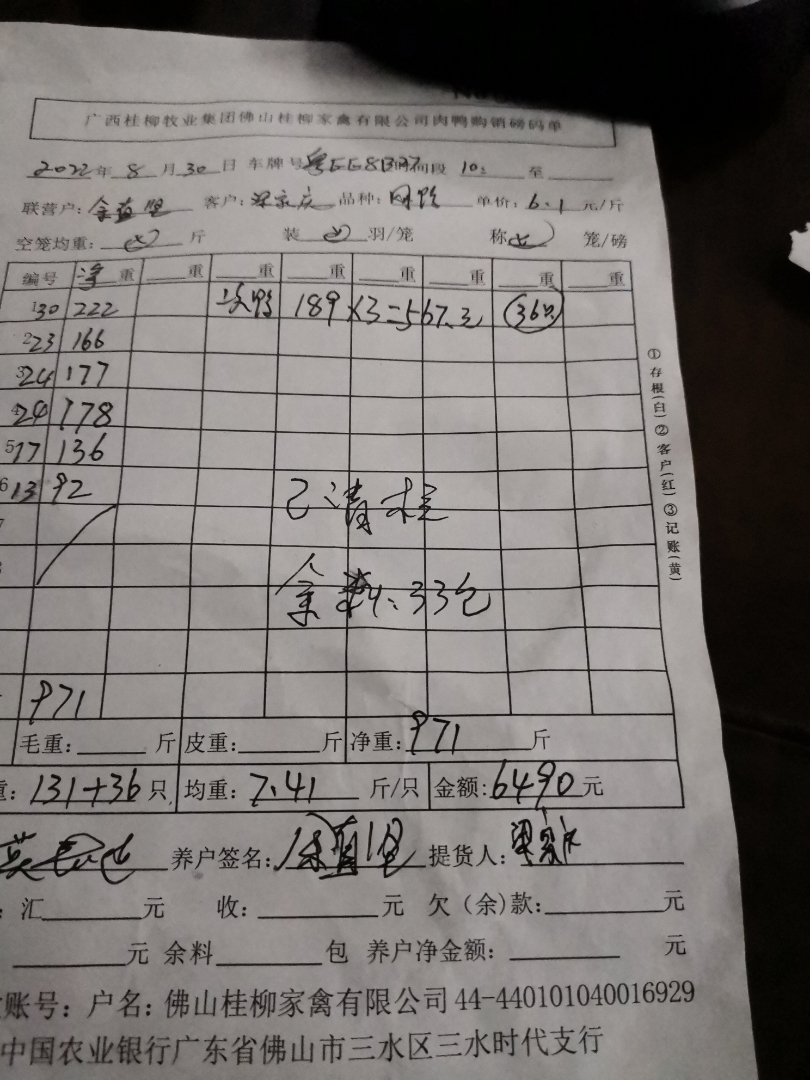 广西桂柳牧业集团佛山桂柳家禽有限公司肉鸭购销磅码单
2022年 8 月 30 日 车牌号 段 10: 至
联营户: 客户: 梁家庆 品种: 单价: 6.1 元/斤
空笼均重: 斤 装 羽/笼 称 笼/磅
编号 净重 重 重 重 重 重 重
1 30 222 次鸭 189×3=567元 36只
2 23 166
3 24 177
4 24 178
5 17 136
6 13 92
已清栏
余料: 33包
971
毛重: 斤 皮重: 斤 净重: 971 斤
131+36 只 均重: 7.41 斤/只 金额: 6490 元
养户签名: 提货人:
汇 元 收: 元 欠(余)款: 元
元 余料 包 养户净金额: 元
账号: 户名: 佛山桂柳家禽有限公司 44-440101040016929
中国农业银行广东省佛山市三水区三水时代支行
①存根(白)②客户(红)③记账(黄)